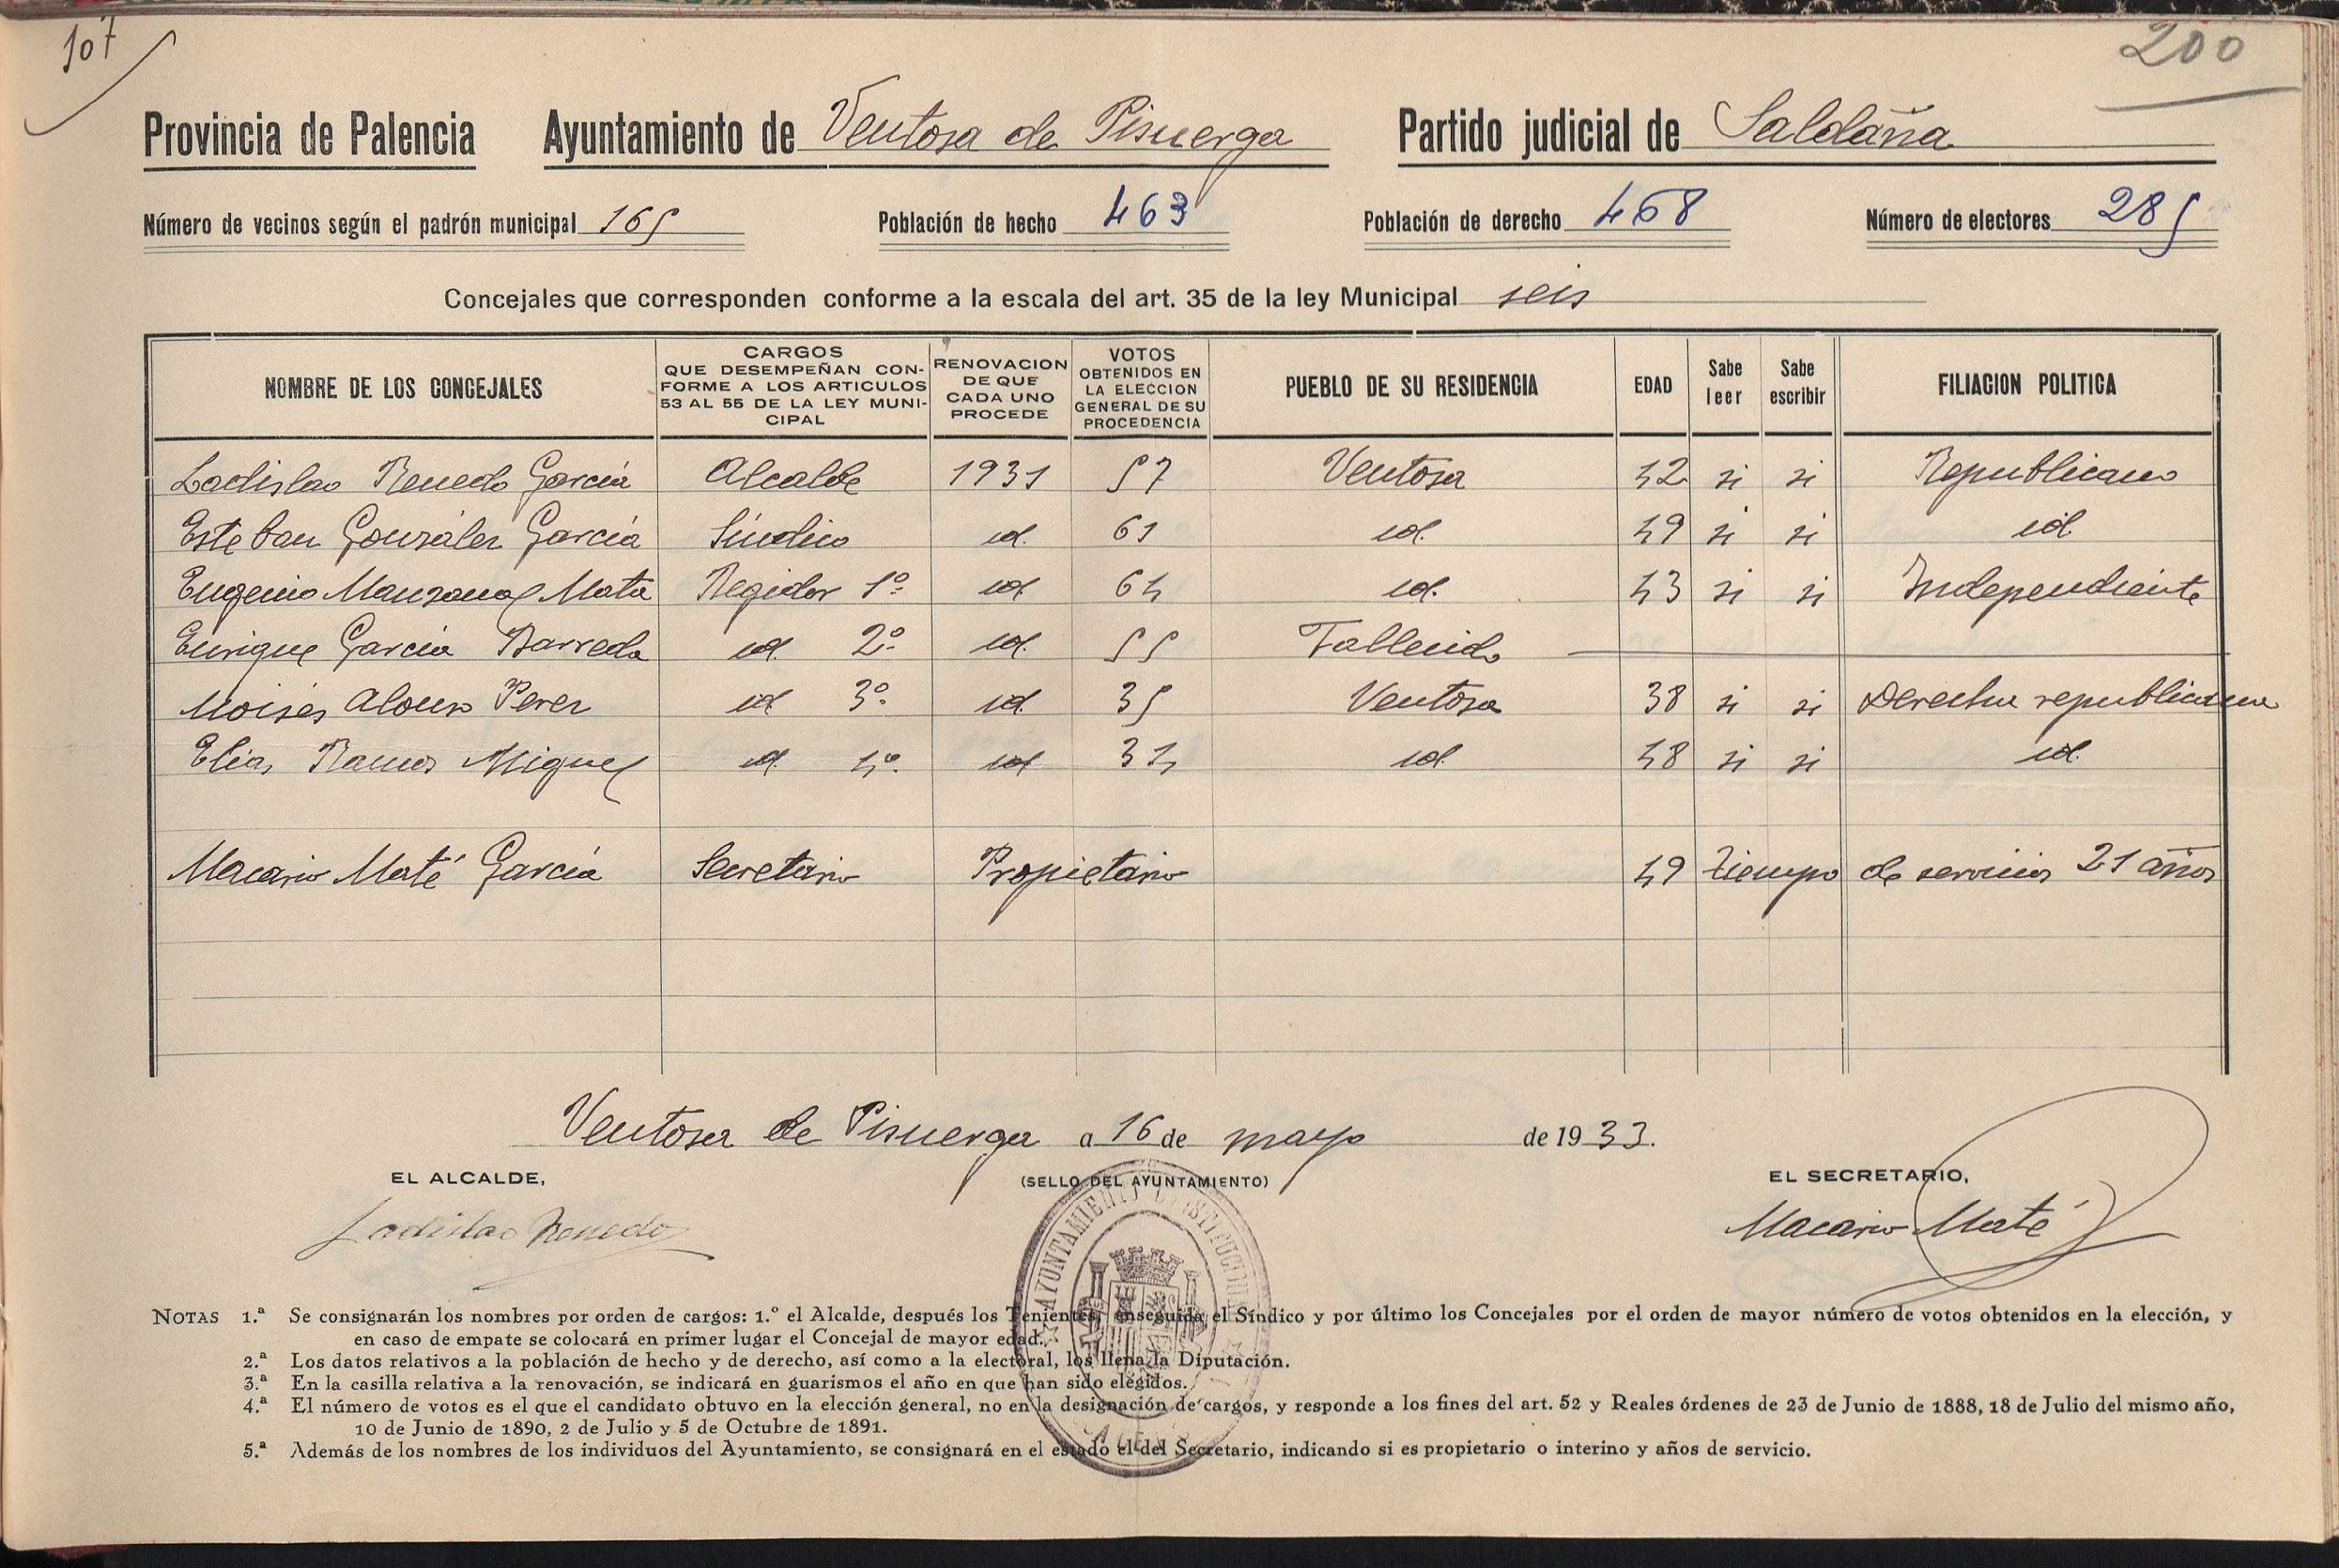 107
200
Provincia de Palencia Ayuntamiento de Ventosa de Pisuerga Partido judicial de Saldaña
Número de vecinos según el padrón municipal 165 Población de hecho 463 Población de derecho 468 Número de electores 285
Concejales que corresponden conforme a la escala del art. 35 de la ley Municipal seis
NOMBRE DE LOS CONCEJALES CARGOS QUE DESEMPEÑAN CONFORME A LOS ARTICULOS 53 AL 55 DE LA LEY MUNICIPAL RENOVACION DE QUE CADA UNO PROCEDE VOTOS OBTENIDOS EN LA ELECCION GENERAL DE SU PROCEDENCIA PUEBLO DE SU RESIDENCIA EDAD Sabe leer Sabe escribir FILIACION POLITICA
Ladislao Renedo García Alcalde 1931 57 Ventosa 42 si si Republicano
Esteban González García Síndico id. 61 id. 49 si si id
Eugenio Manzanal Mata Regidor 1º id 64 id. 43 si si Independiente
Enrique García Barreda id. 2º id. 55 Fallecido
Moisés Alonso Perez id 3º id 35 Ventosa 38 si si Derecha republicana
Elías Ramos Miguel id 4º id 34 id. 48 si si id.
Macario Maté García Secretario Propietario 49 tiempo de servicios 21 años
Ventosa de Pisuerga a 16 de mayo de 1933.
EL ALCALDE, (SELLO DEL AYUNTAMIENTO) EL SECRETARIO,
Ladislao Renedo Macario Maté
AYUNTAMIENTO CONSTITUCIONAL
NOTAS 1.ª Se consignarán los nombres por orden de cargos: 1.º el Alcalde, después los Tenientes, enseguida el Síndico y por último los Concejales por el orden de mayor número de votos obtenidos en la elección, y
en caso de empate se colocará en primer lugar el Concejal de mayor edad.
2.ª Los datos relativos a la población de hecho y de derecho, así como a la electoral, los llena la Diputación.
3.ª En la casilla relativa a la renovación, se indicará en guarismos el año en que han sido elegidos.
4.ª El número de votos es el que el candidato obtuvo en la elección general, no en la designación de cargos, y responde a los fines del art. 52 y Reales órdenes de 23 de Junio de 1888, 18 de Julio del mismo año,
10 de Junio de 1890, 2 de Julio y 5 de Octubre de 1891.
5.ª Además de los nombres de los individuos del Ayuntamiento, se consignará en el estado el del Secretario, indicando si es propietario o interino y años de servicio.